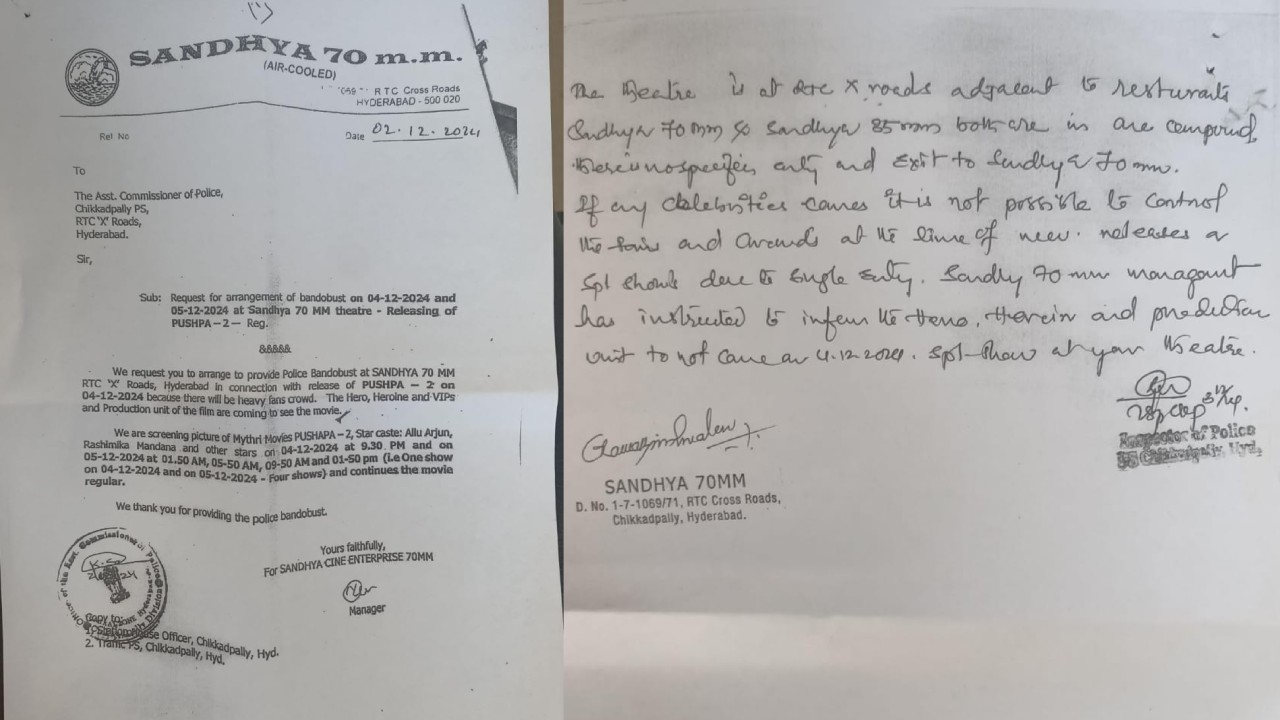 SANDHYA 70 m.m.
(AIR-COOLED)
RTC Cross Roads
HYDERABAD - 500 020
Ref No
Date 02.12.2024
To
The Asst. Commissioner of Police,
Chikkadpally PS,
RTC 'X' Roads,
Hyderabad.
Sir,
Sub: Request for arrangement of bandobust on 04-12-2024 and
05-12-2024 at Sandhya 70 MM theatre - Releasing of
PUSHPA-2 - Reg.
&&&&&
We request you to arrange to provide Police Bandobust at SANDHYA 70 MM
RTC 'X' Roads, Hyderabad in connection with release of PUSHPA - 2 on
04-12-2024 because there will be heavy fans crowd. The Hero, Heroine and VIPs
and Production unit of the film are coming to see the movie.
We are screening picture of Mythri Movies PUSHAPA-2, Star caste: Allu Arjun,
Rashimika Mandana and other stars on 04-12-2024 at 9.30 PM and on
05-12-2024 at 01.50 AM, 05-50 AM, 09-50 AM and 01-50 pm (i.e One show
on 04-12-2024 and on 05-12-2024 - Four shows) and continues the movie
regular.
We thank you for providing the police bandobust.
Yours faithfully,
For SANDHYA CINE ENTERPRISE 70MM
Manager
Office of the Asst. Commissioner of Police
House Officer, Chikkadpally, Hyd.
2. Traffic PS, Chikkadpally, Hyd,
The theatre is at RTC X roads adjacent to
Sandhya 70 mm & Sandhya 35 mm both are in compound,
entry and exit to Sandhya 70 mm.
If any celebrities comes it is not possible to control
the fans and crowds at the time of new releases
spl shows due to single entry. Sandhya 70 mm
has instructed to inform the Hero, and
unit to not come on 4.12.2024. spl-show at your theatre.
SANDHYA 70MM
D. No. 1-7-1069/71, RTC Cross Roads,
Chikkadpally, Hyderabad.
Inspector of Police
PS Chikkadpally, Hyd.